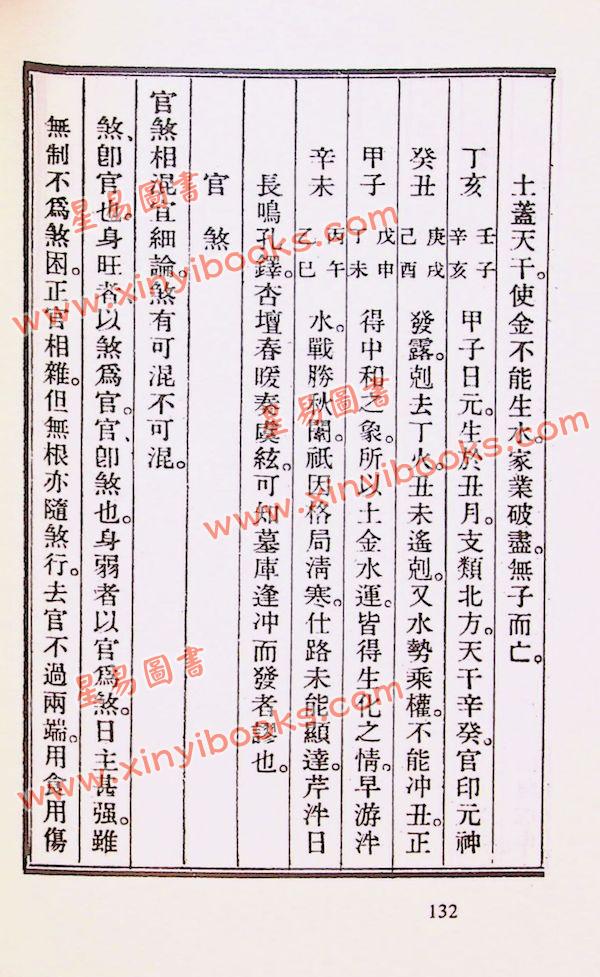 土蓋天干。使金不能生水。家業破盡。無子而亡。
丁亥 壬子 辛亥 甲子日元。生於丑月。支類北方。天干辛癸。官印元神
癸丑 庚戌 己酉 發露。剋去丁火。丑未遙剋。又水勢乘權。不能冲丑。正
甲子 戊申 丁未 得中和之象。所以土金水運。皆得生化之情。早游泮
辛未 丙午 乙巳 水。戰勝秋闈。祇因格局清寒。仕路未能顯達。芹泮日
長鳴孔鐸。杏壇春暖奏虞絃。可知墓庫逢冲而發者謬也。
官煞
官煞相混宜細論。煞有可混不可混。
煞、卽官也。身旺者以煞爲官。官卽煞也。身弱者以官爲煞。日主甚强。雖
無制不爲煞困。正官相雜。但無根亦隨煞行。去官不過兩端。用食用傷
132
星易圖書
www.xinyibooks.com
星易圖書
www.xinyibooks.com
星易圖書
www.xinyibooks.com